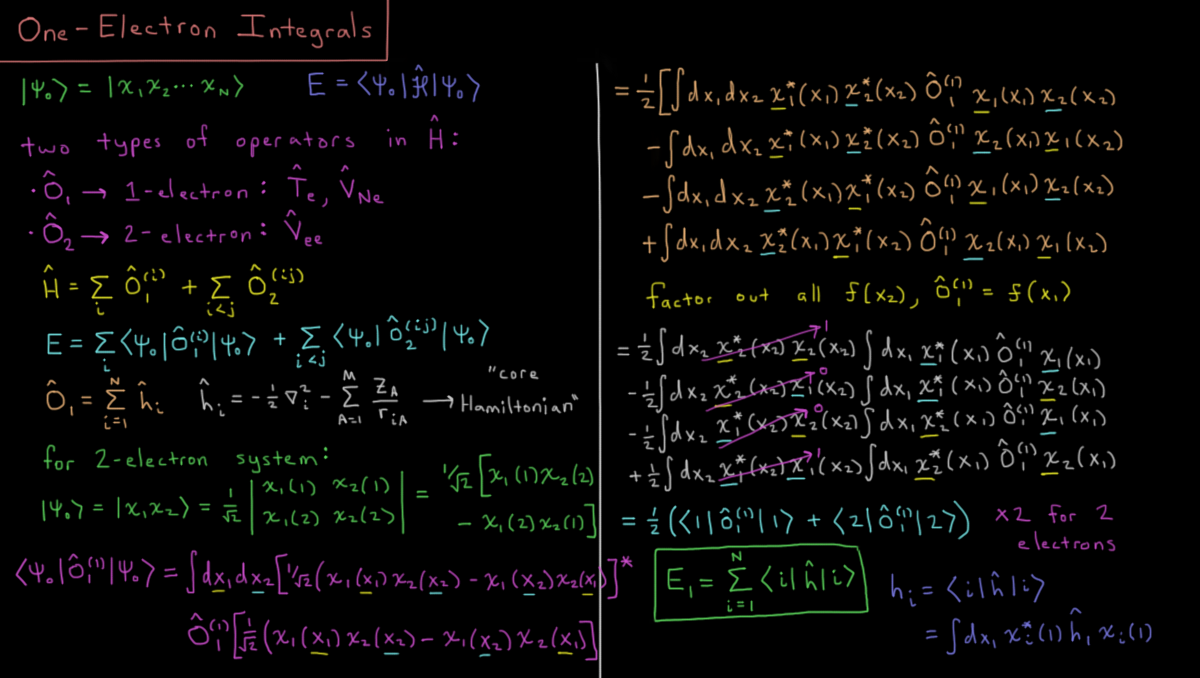 One-Electron Integrals
|Ψ₀⟩ = |χ₁χ₂⋯χ_N⟩   E = ⟨Ψ₀|Ĥ|Ψ₀⟩
two types of operators in Ĥ:
· Ô₁ → 1-electron: T̂e, V̂Ne
· Ô₂ → 2-electron: V̂ee
Ĥ = Σ_i Ô₁⁽ⁱ⁾ + Σ_{i<j} Ô₂⁽ⁱʲ⁾
E = Σ_i ⟨Ψ₀|Ô₁⁽ⁱ⁾|Ψ₀⟩ + Σ_{i<j} ⟨Ψ₀|Ô₂⁽ⁱʲ⁾|Ψ₀⟩
Ô₁ = Σ_{i=1}^{N} ĥᵢ   ĥᵢ = -½∇ᵢ² - Σ_{A=1}^{M} Z_A/r_{iA} → "core Hamiltonian"
for 2-electron system:
|Ψ₀⟩ = |χ₁χ₂⟩ = 1/√2 |χ₁(1) χ₂(1) ; χ₁(2) χ₂(2)| = 1/√2 [χ₁(1)χ₂(2) - χ₁(2)χ₂(1)]
⟨Ψ₀|Ô₁⁽¹⁾|Ψ₀⟩ = ∫dx₁dx₂[1/√2(χ₁(x₁)χ₂(x₂) - χ₁(x₂)χ₂(x₁)]*
Ô₁⁽¹⁾[1/√2(χ₁(x₁)χ₂(x₂) - χ₁(x₂)χ₂(x₁)]
= ½[∫dx₁dx₂ χ₁*(x₁)χ₂*(x₂) Ô₁⁽¹⁾ χ₁(x₁)χ₂(x₂)
-∫dx₁dx₂ χ₁*(x₁)χ₂*(x₂) Ô₁⁽¹⁾ χ₂(x₁)χ₁(x₂)
-∫dx₁dx₂ χ₂*(x₁)χ₁*(x₂) Ô₁⁽¹⁾ χ₁(x₁)χ₂(x₂)
+∫dx₁dx₂ χ₂*(x₁)χ₁*(x₂) Ô₁⁽¹⁾ χ₂(x₁)χ₁(x₂)
factor out all f(x₂), Ô₁⁽¹⁾ = f(x₁)
= ½∫dx₂ χ₂*(x₂)χ₂(x₂) 1 ∫dx₁ χ₁*(x₁) Ô₁⁽¹⁾ χ₁(x₁)
-½∫dx₂ χ₂*(x₂)χ₁(x₂) 0 ∫dx₁ χ₁*(x₁) Ô₁⁽¹⁾ χ₂(x₁)
-½∫dx₂ χ₁*(x₂)χ₂(x₂) 0 ∫dx₁ χ₂*(x₁) Ô₁⁽¹⁾ χ₁(x₁)
+½∫dx₂ χ₁*(x₂)χ₁(x₂) 1 ∫dx₁ χ₂*(x₁) Ô₁⁽¹⁾ χ₂(x₁)
= ½(⟨1|Ô₁⁽¹⁾|1⟩ + ⟨2|Ô₁⁽¹⁾|2⟩)   x2 for 2 electrons
E₁ = Σ_{i=1}^{N} ⟨i|ĥ|i⟩
hᵢ = ⟨i|ĥ|i⟩
= ∫dx₁ χᵢ*(1) ĥ₁ χᵢ(1)